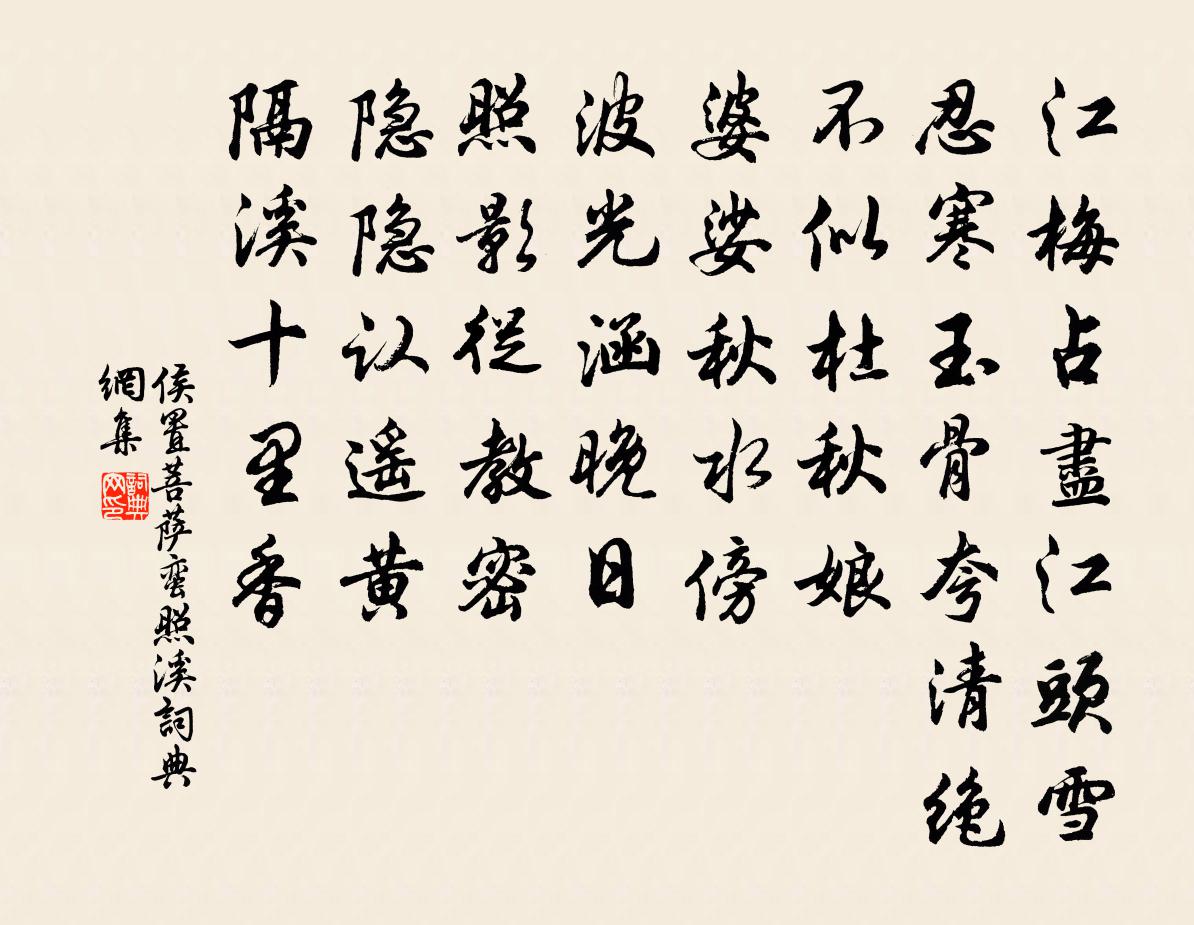 江梅占盡江頭雪
忍寒玉骨夸清绝
不似杜秋娘
婆娑秋水傍
波光涵晚日
照影從教密
隐隐认遥黄
隔溪十里香
侯置菩萨蛮照溪詞典
網集
詞典
网印